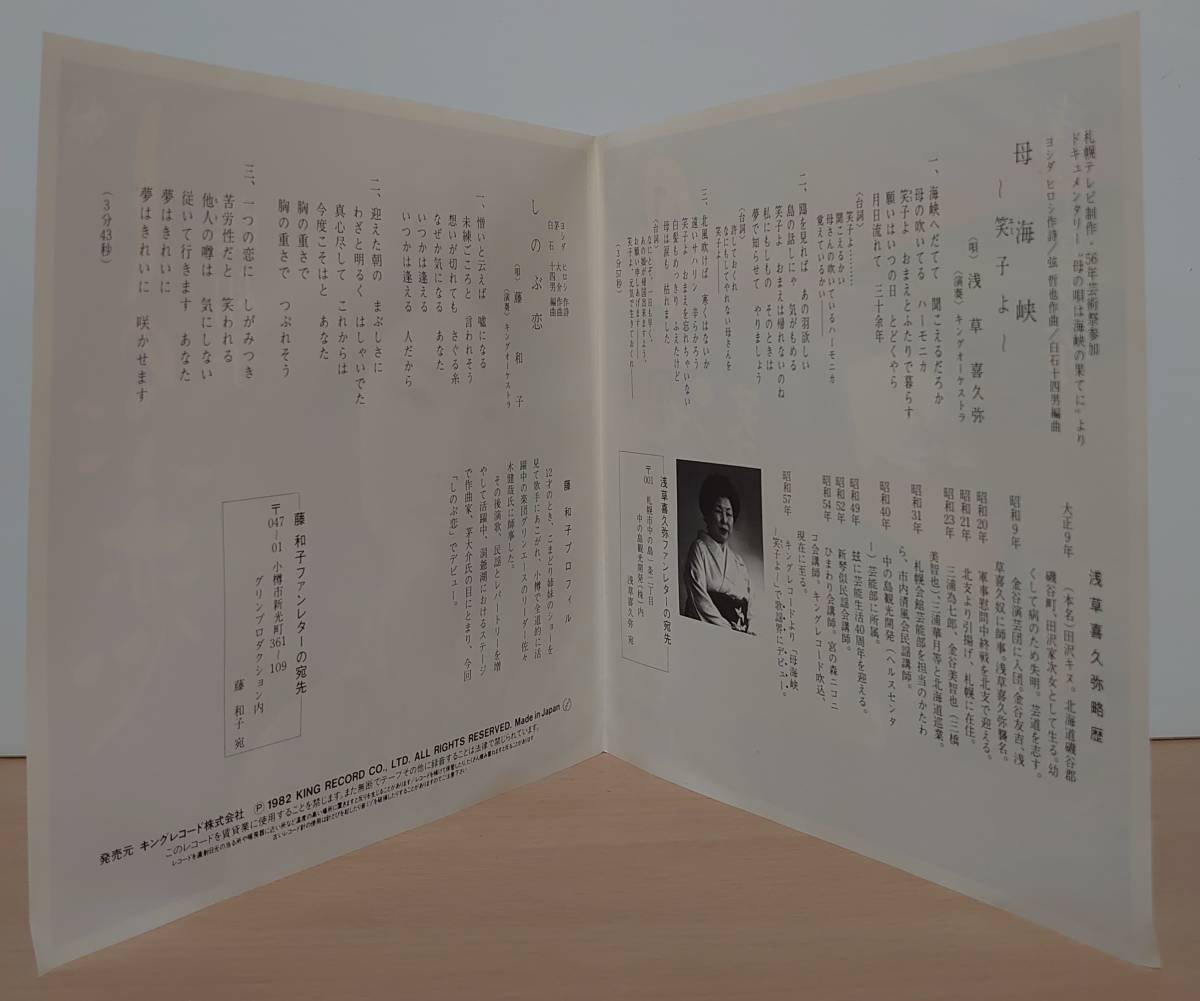 札幌テレビ制作・56年芸術祭参加
ドキュメンタリー“母の唄は海峡の果てに”より
ヨシダヒロシ作詩／弦 哲也作曲／白石十四男編曲
母 海峡
〜笑子よ〜
（唄）浅草喜久弥
（演奏）キングオーケストラ
一、海峡へだてて 聞こえるだろか
母の吹いてる ハーモニカ
笑子よ おまえとふたりで暮らす
願いはいつの日 とどくやら
月日流れて 三十余年
（台詞）
笑子よ………
聞こえるかい
母さんの吹いているハーモニカ
覚えているかい――
二、鴎を見れば あの羽欲しい
島の話しにゃ 気がもめる
笑子よ おまえは帰れないのね
私にもしもの そのときは
夢で知らせて やりましょう
（台詞）
許しておくれ
なにもしてやれない母さんを
笑子よ――
三、北風吹けば 寒くはないか
遠いサハリン 辛らかろう
笑子よ おまえを忘れちゃいない
白髪もめっきり ふえたけど
母は涙も 枯れました
（台詞）
なにとぞ、一日も早く、
あの娘が帰国出来ますよう、
お願い申しあげます――
笑子よ、元気で生きておくれ――
（3分57秒）
浅草喜久弥略歴
大正9年 （本名）田沢キヌ。北海道磯谷郡
磯谷町、田沢家次女として生る。幼
くして病のため失明。芸道を志す。
昭和9年 金谷演芸団に入団。金谷友吉、浅
草喜久奴に師事。浅草喜久弥襲名。
昭和20年 軍事慰問中終戦を北支で迎える。
昭和21年 北支より引揚げ、札幌に在住。
昭和23年 三浦為七郎、金谷美智也（三橋
美智也）、三浦華月等と北海道巡業。
昭和31年 札幌会館芸能部を担当のかたわ
ら、市内清風会民謡講師。
昭和40年 中の島観光開発（ヘルスセンタ
ー）芸能部に所属。
昭和49年 玆に芸能生活40周年を迎える。
昭和52年 新琴似民謡会講師。
昭和54年 ひまわり会講師。宮の森ニコニ
コ会講師。キングレコード吹込、
現在に至る。
昭和57年 キングレコードより「母海峡
―笑子よ―」で歌謡界にデビュー。
浅草喜久弥ファンレターの宛先
〒001 札幌市中の島一条二丁目
中の島観光開発（株）内
浅草喜久弥 宛
ヨシダ ヒロシ 作詩
茅 大介 作曲
白石 十四男 編曲
しのぶ恋
（唄）藤 和子
（演奏）キングオーケストラ
一、憎いと云えば 嘘になる
未練ごころと 言われそう
想いが切れても さぐる糸
なぜか気になる あなた
いつかは逢える
いつかは逢える 人だから
二、迎えた朝の まぶしさに
わざと明るく はしゃいでた
真心尽して これからは
今度こそはと あなた
胸の重さで
胸の重さで つぶれそう
三、一つの恋に しがみつき
苦労性だと 笑われる
他人の噂は 気にしない
従いて行きます あなた
夢はきれいに
夢はきれいに 咲かせます
（3分43秒）
藤 和子プロフィル
12才のとき、こまどり姉妹のショーを
見て歌手にあこがれ、小樽で全道的に活
躍中の楽団グリンエースのリーダー佐々
木健哉氏に師事した。
その後演歌、民謡とレパートリーを増
やして活躍中、洞爺湖におけるステージ
で作曲家、茅大介氏の目にとまり、今回
「しのぶ恋」でデビュー。
藤 和子ファンレターの宛先
〒047-01 小樽市新光町361-109
グリンプロダクション内
藤 和子 宛
発売元 キングレコード株式会社 Ⓟ1982 KING RECORD CO., LTD. ALL RIGHTS RESERVED. Made in Japan
このレコードを賃貸業に使用することを禁じます。また無断でテープその他に録音することは法律で禁じられています。